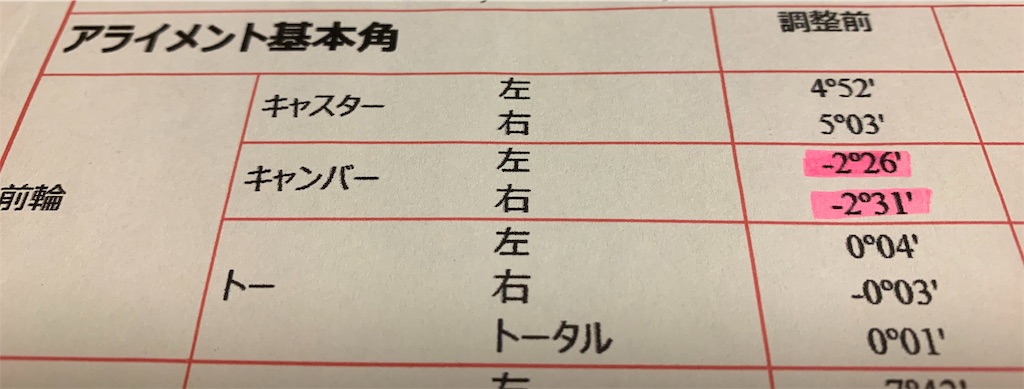 アライメント基本角 調整前
キャスター 左 4°52'
右 5°03'
前輪
キャンバー 左 -2°26'
右 -2°31'
トー 左 0°04'
右 -0°03'
トータル 0°01'